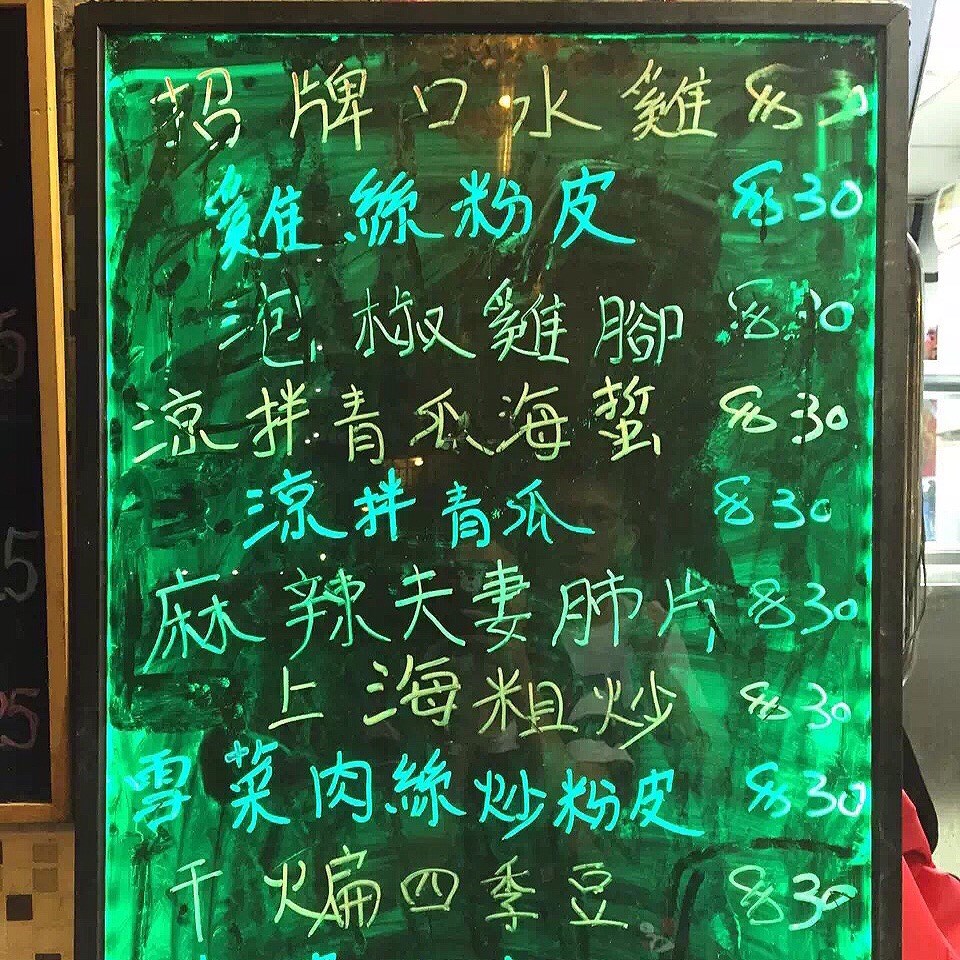 招牌口水雞 $30
雞絲粉皮 $30
泡椒雞腳 $30
涼拌青瓜海蜇 $30
涼拌青瓜 $30
麻辣夫妻肺片 $30
上海粗炒 $30
雪菜肉絲炒粉皮 $30
干煸四季豆 $30
5
5
25